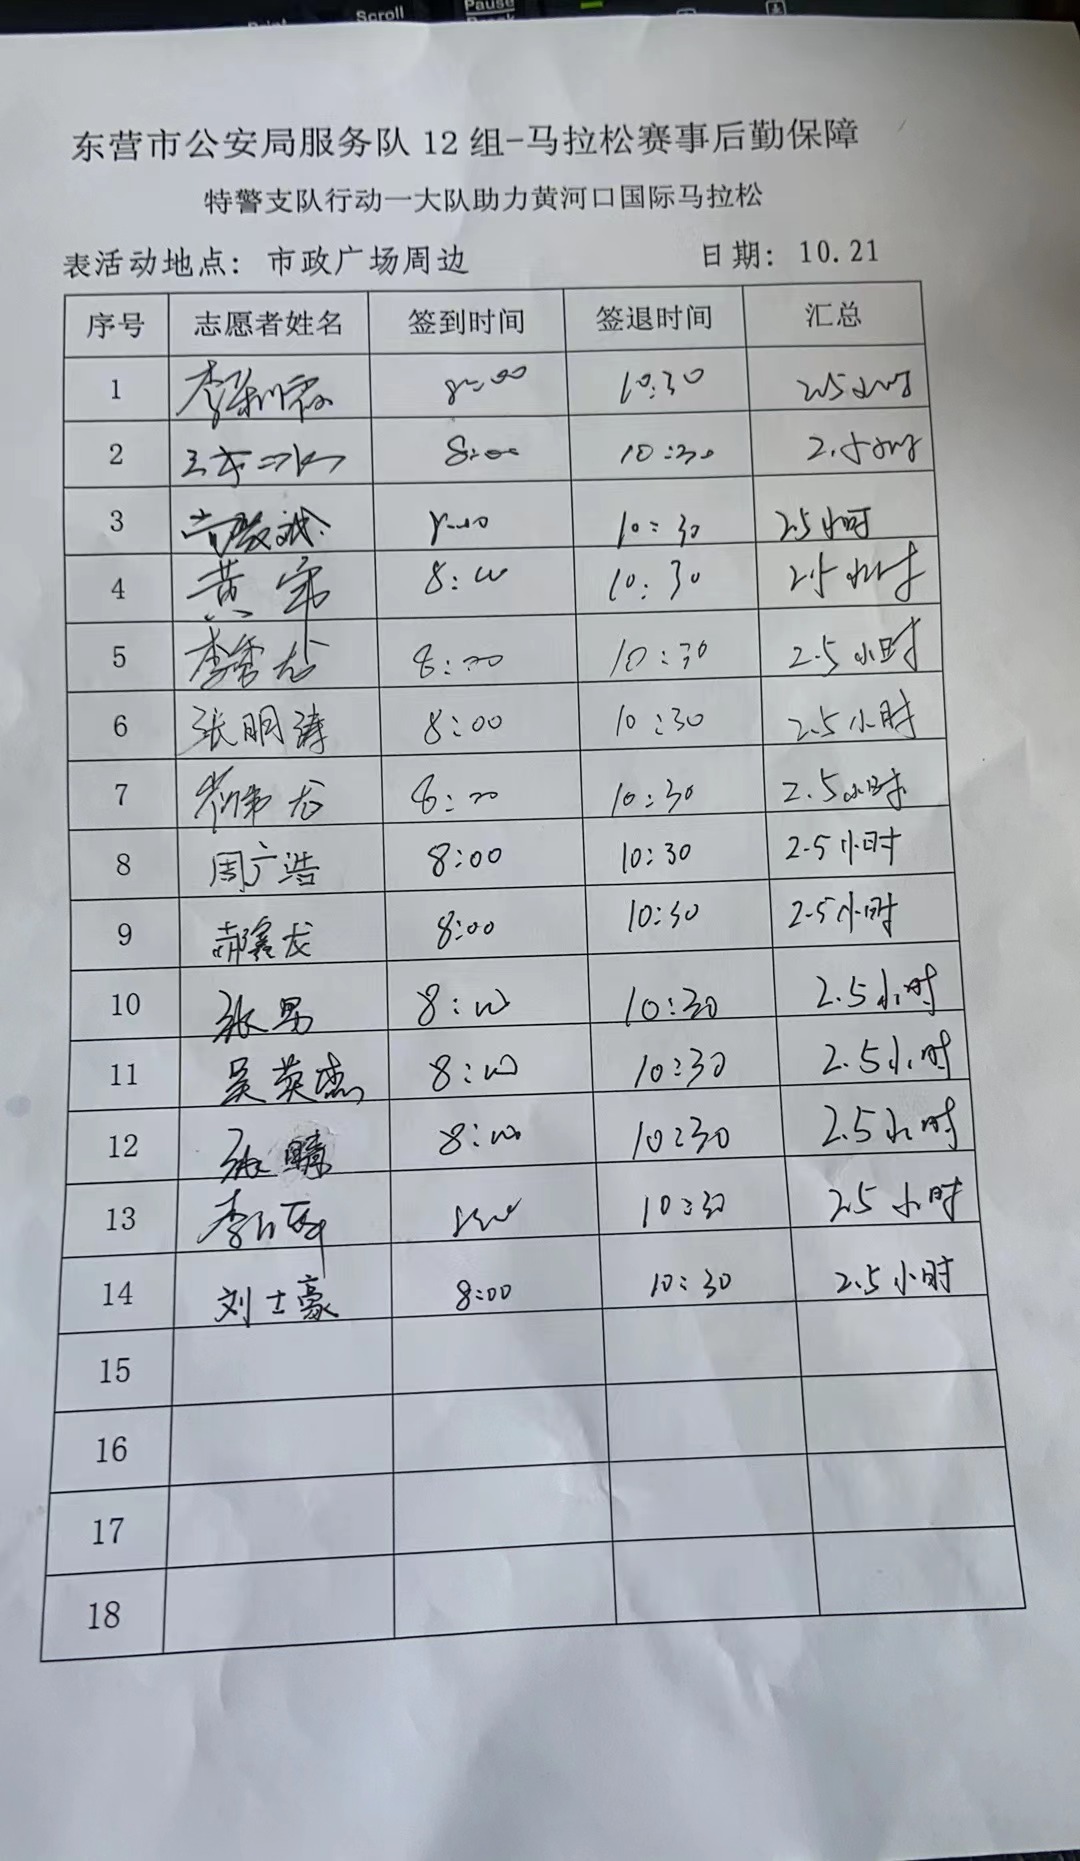 Scroll
Pause
东营市公安局服务队 12 组-马拉松赛事后勤保障
特警支队行动一大队助力黄河口国际马拉松
表活动地点: 市政广场周边 日期: 10.21
序号 志愿者姓名 签到时间 签退时间 汇总
1 8:00 10:30 2.5小时
2 8:00 10:30 2.5小时
3 8:00 10:30 2.5小时
4 黄 8:00 10:30 2.5小时
5 李秀龙 8:00 10:30 2.5小时
6 张明涛 8:00 10:30 2.5小时
7 8:00 10:30 2.5小时
8 周广浩 8:00 10:30 2.5小时
9 郝鑫龙 8:00 10:30 2.5小时
10 张男 8:00 10:30 2.5小时
11 吴英杰 8:00 10:30 2.5小时
12 张 8:00 10:30 2.5小时
13 李 8:00 10:30 2.5小时
14 刘士豪 8:00 10:30 2.5小时
15
16
17
18